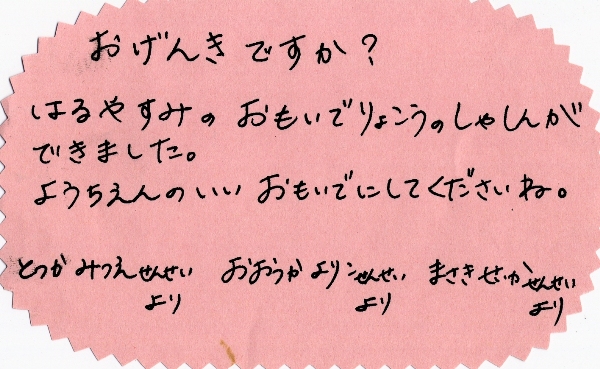 おげんきですか？
はるやすみの おもいでりょこうのしゃしんが
できました。
ようちえんのいい おもいでにしてくださいね。
とつか みつえせんせい おおうか よりこせんせい まさき せいかせんせい
より より より